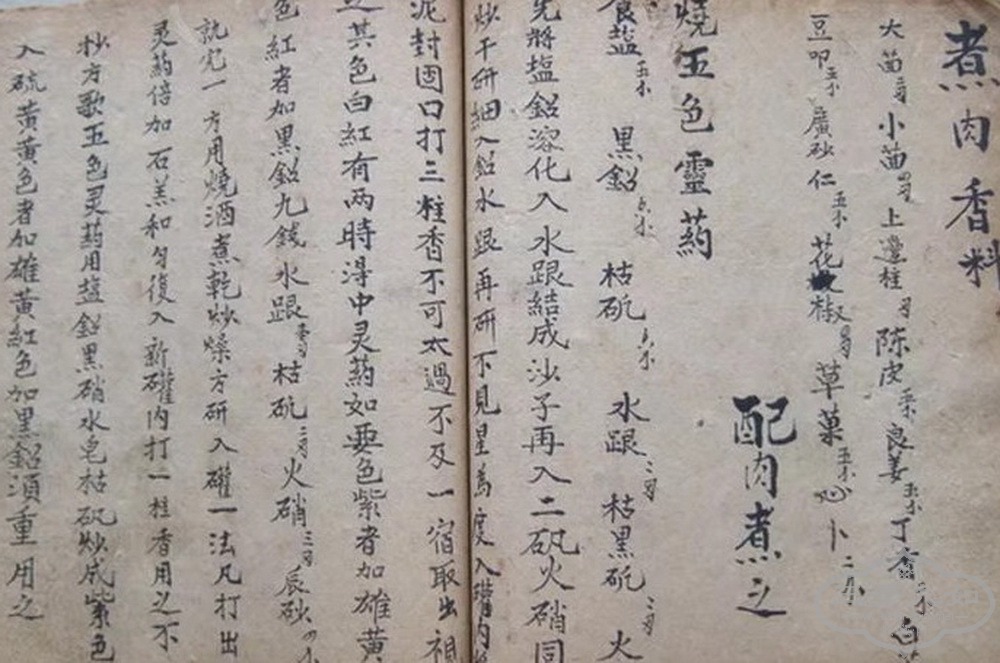 煮肉香料
大茴 小茴 上邊桂 陈皮 良姜 丁香 白
豆叩 廣砂仁 花椒 草菓 卜
配肉煮之
燒五色靈葯
食盐 黑鉛 枯矾 水踉 枯黑矾 火
先將塩鉛溶化入水踉結成沙子再入二矾火硝同
炒干研細入鉛水踉再研不見星為度入礶内
泥封固口打三柱香不可太過不及一宿取出視
之其色白紅有兩時淂中灵葯如要色紫者加雄黄
色紅者加黑鉛九錢水踉 枯矾 火硝 三 辰砂
訣完一方用燒酒煮乾炒燥方研入礶一法凡打出
灵葯倍加石羔和匀復入新礶内打一柱香用之不
抄方歌五色灵葯用塩鉛黑硝水皂枯矾炒成紫色
入硫黄黄色者加雄黄紅色加黑鉛須重用之